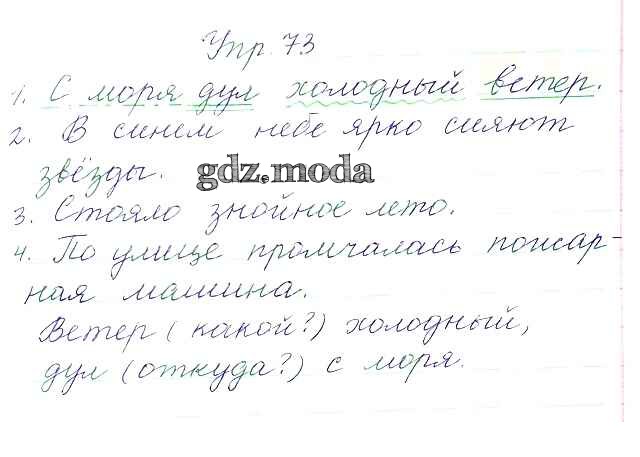 Упр. 73
1. С моря дул холодный ветер.
2. В синем небе ярко сияют
звёзды. gdz.moda
3. Стояло знойное лето.
4. По улице промчалась пожар-
ная машина.
Ветер (какой?) холодный,
дул (откуда?) с моря.